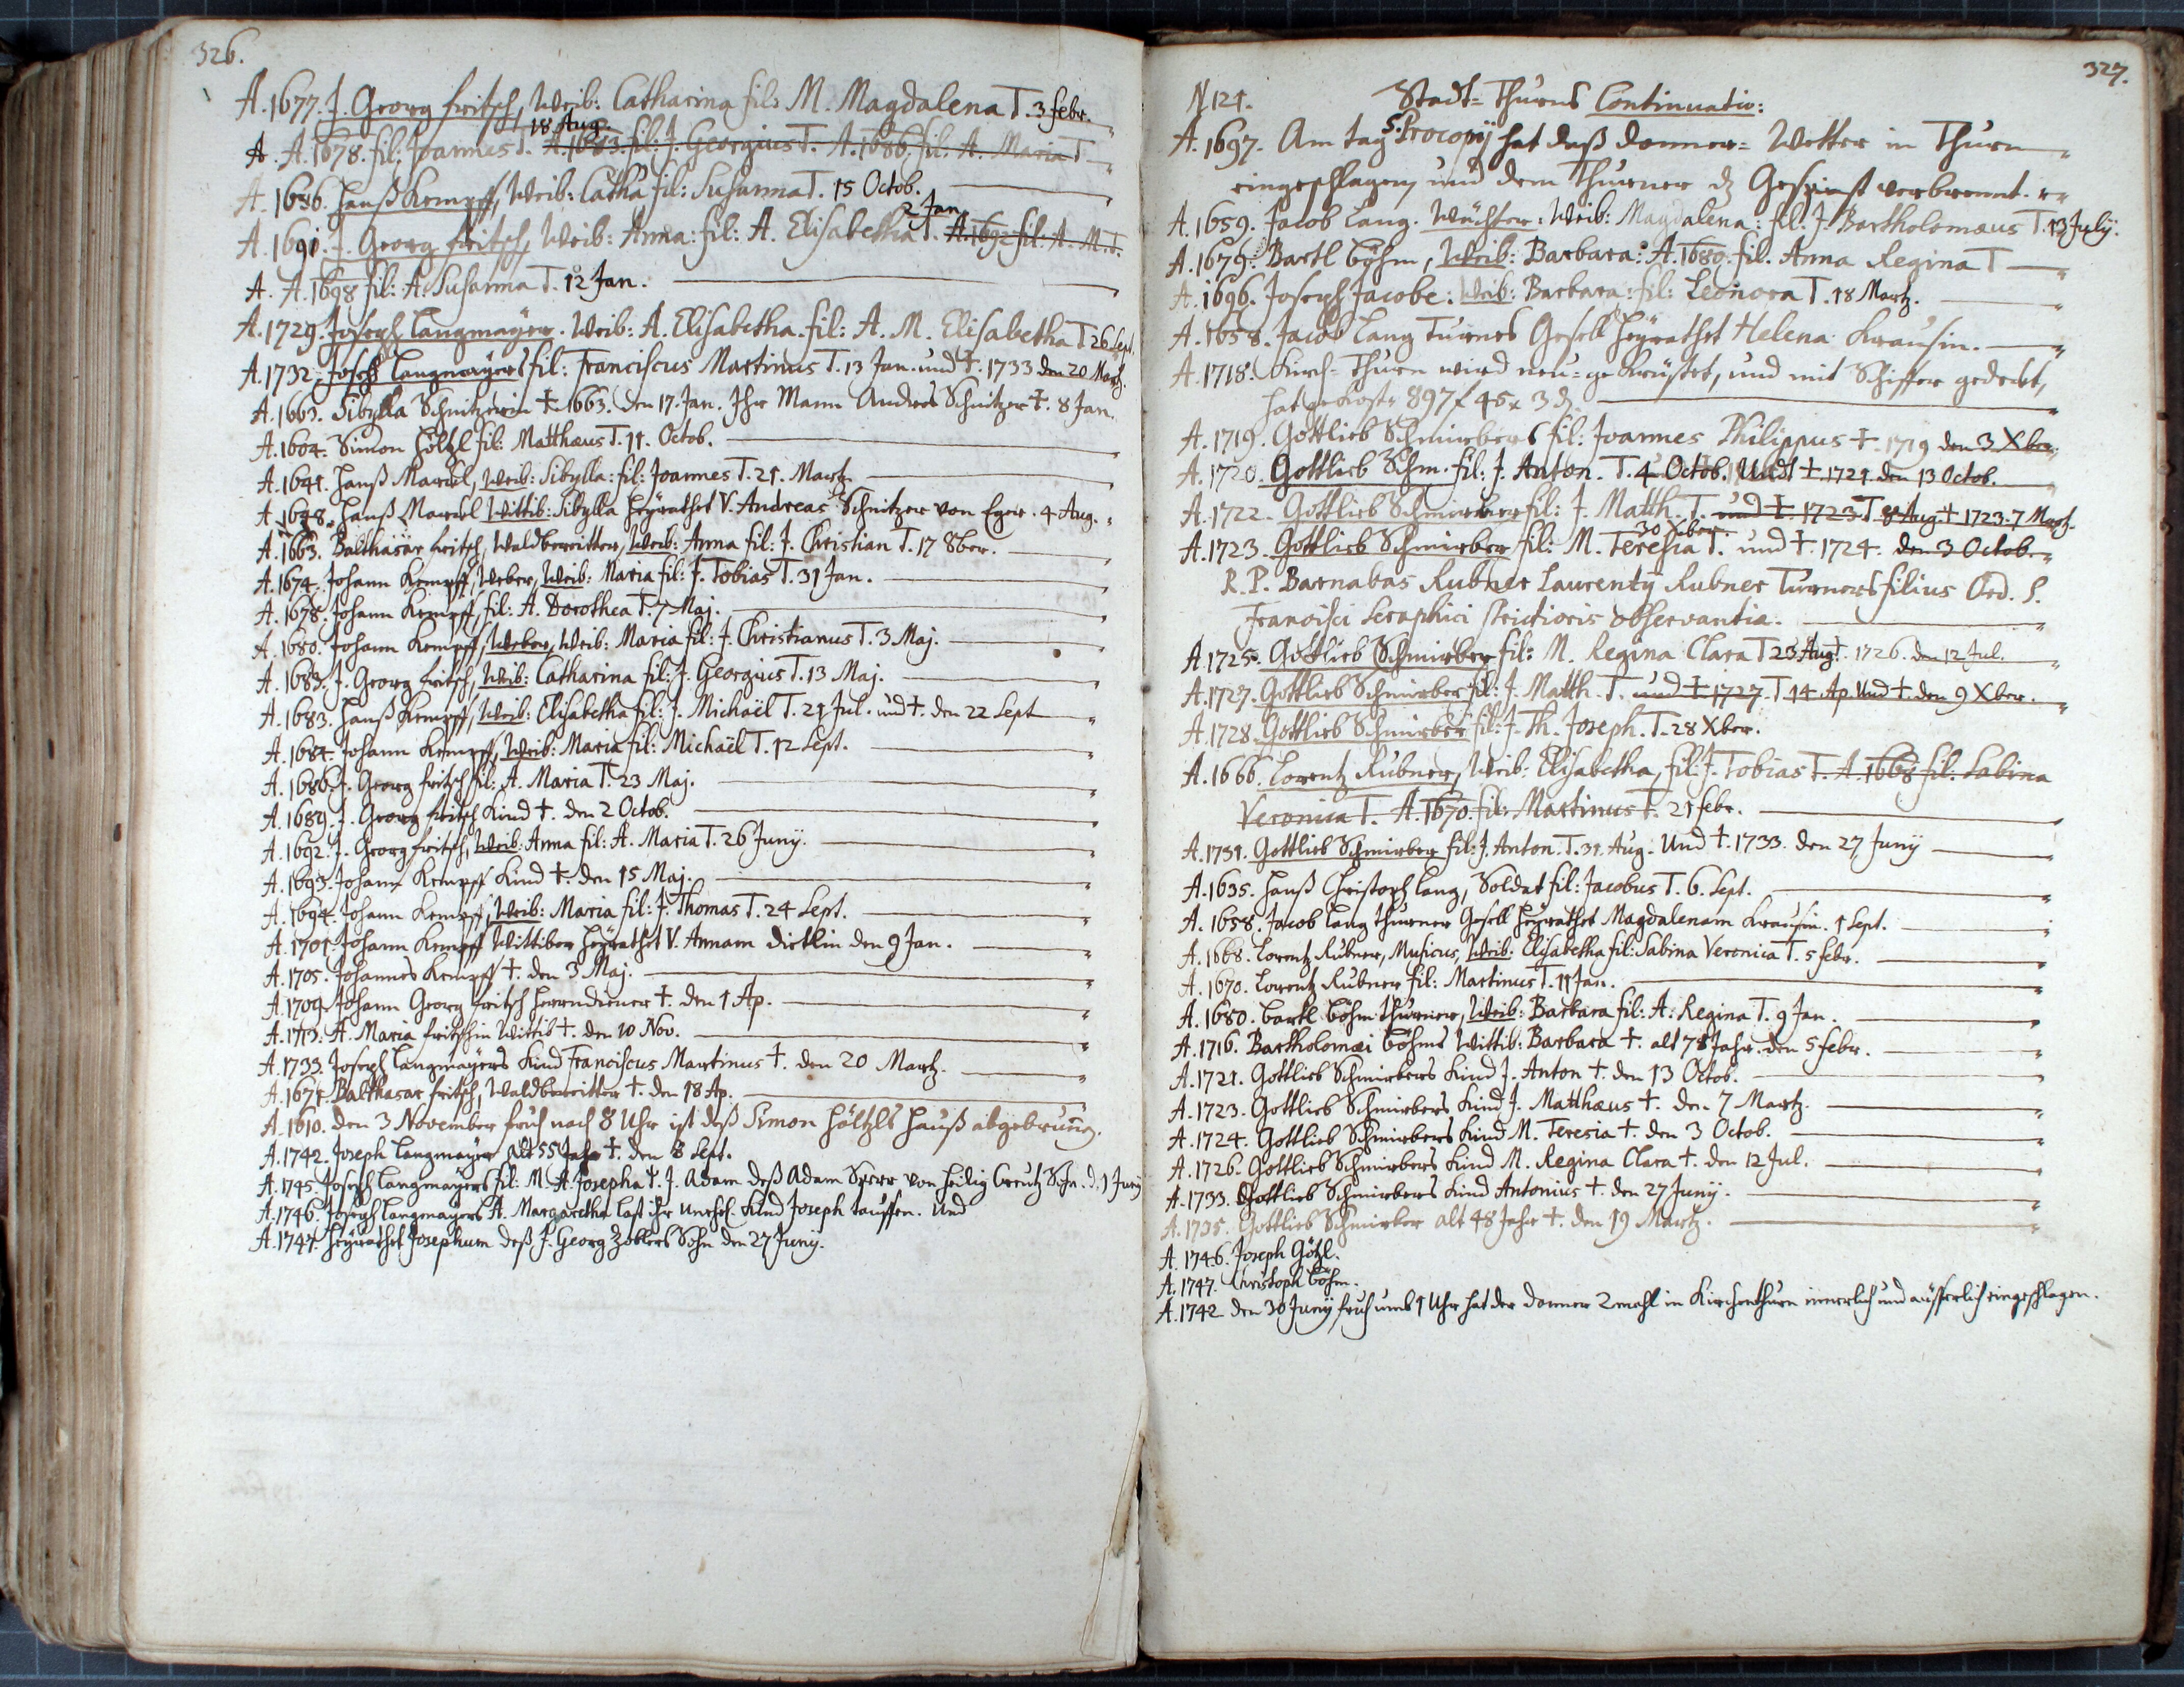 326.
A. 1677. J. Georg Fritsch, Weib: Catharina fil: M. Magdalena T. 3 Febr.
18 Aug.
A. A. 1678. fil: Joannes T. A. 1683. fil: J. Georgius T. A. 1686. fil. A. Maria T
A. 1686. Hanß Kempff, Weib: Catha fil: Susanna T. 15 Octob.
2 Jan.
A. 1691. J. Georg Fritsch, Weib: Anna: fil: A. Elisabetha T. A. 1692 fil: A. M. T.
A. A. 1698 fil: A. Susanna T. 12 Jan.
A. 1729. Joseph Langmayer. Weib: A. Elisabetha. fil: A. M. Elisabetha T 26 Sept.
A. 1732. Joseph Langmayers fil: Franciscus Martinus T. 13 Jan. und †. 1733 den 20 Martz.
A. 1663. Sibylla Schnitzerin † 1663. den 17. Jan. Ihr Mann Andres Schnitzer †. 8 Jan.
A. 1604. Simon Höltzl fil: Matthæus T. 11. Octob.
A. 1641. Hanß Marcel, Weib: Sibylla: fil: Joannes T. 21. Martz
A. 1648. Hanß Marcel Wittib: Sibylla heÿrathet V. Andreas Schnitzer von Eger. 4 Aug.
A. 1663. Balthasar Fritsch, Waldbereitter, Weib: Anna fil: J. Christian T. 17 8ber.
A. 1674. Johann Kempff, Weber, Weib: Maria fil: J. Tobias T. 31 Jan.
A. 1678. Johann Kempff, fil: A. Dorothea T. 7 Maj.
A. 1680. Johann Kempff, Weber, Weib: Maria fil: J. Christianus T. 3 Maj.
A. 1683. J. Georg Fritsch, Weib: Catharina fil: J. Georgius T. 13 Maj.
A. 1683. Hanß Kempff, Weib: Elisabetha fil: J. Michaël T. 21 Jul. und †. den 22 Sept
A. 1684. Johann Kempff, Weib: Maria fil: Michaël T. 12 Sept.
A. 1686. J. Georg Fritsch fil: A. Maria T. 23 Maj.
A. 1689. J. Georg Fritsch Kind †. den 2 Octob.
A. 1692. J. Georg Fritsch, Weib: Anna fil: A. Maria T. 26 Junÿ.
A. 1693. Johann Kempff Kind †. den 15 Maj.
A. 1694. Johann Kempff, Weib: Maria fil: J. Thomas T. 24 Sept.
A. 1701. Johann Kempff Wittiber heÿrathet V. Annam Dietlin den 9 Jan.
A. 1705. Johannes Kempff †. den 3 Maj.
A. 1709. Johann Georg Fritsch Herrendiener †. den 1 Ap.
A. 1713. A. Maria Fritschin Wittib †. den 10 Nov.
A. 1733. Joseph Langmayers Kind Franciscus Martinus †. den 20 Martz.
A. 1671. Balthasar Fritsch, Waldbereitter †. den 18 Ap.
A. 1610. den 3 November fruh nach 8 Uhr ist deß Simon Höltzls Hauß abgebruñ.
A. 1742. Joseph Langmayer alt 55 Jahr †. den 8 Sept.
A. 1745. Joseph Langmayers fil: M. A. Josepha V. J. Adam deß Adam Sperr von Heilig Creutz Sohn. d. 1 Junÿ
A. 1746. Joseph Langmayers A. Margaretha last ihr Unehel. Kind Joseph tauffen. Und
A. 1747. heÿrathet Josephum deß J. Georg Zoblers Sohn den 27 Junÿ.
327.
N 121. Stadt-Thurns Continuatio:
A. 1697. Am tag S. Procopÿ hat daß donner-Wetter in Thurn
eingeschlagen, und dem Thurner dz Gespinst verbrennt.
A. 1659. Jacob Lang. Wächter: Weib: Magdalena: fil: J. Bartholomæus T. 13 Julÿ.
A. 1679. Bartl Böhm, Weib: Barbara: A. 1680. fil. Anna Regina T
A. 1696. Joseph Jacobe: Weib: Barbara: fil: Leonora T. 18 Martz.
A. 1658. Jacob Lang Turners Gesell heÿrathet Helena Krausin.
A. 1718. Kirch-Thurn wird neu-gekrüstet, und mit Schiffer gedeckt,
hat gekost 897 f 45 x 3 d.
A. 1719. Gottlieb Schmirbers fil: Joannes Philippus † 1719 den 3 Xber.
A. 1720. Gottlieb Schm. fil: J. Anton. T. 4 Octob. Undt †. 1721. den 13 Octob.
A. 1722. Gottlieb Schmirber fil: J. Matth. T. und †. 1723. T 8 Aug † 1723. 7 Martz.
30 Xber.
A. 1723. Gottlieb Schmirber fil: M. Teresia T. und †. 1724. den 3 Octob.
R. P. Barnabas Rubner Laurentÿ Rubner Turners filius Ord. S.
Francisci Seraphici strictioris observantiæ.
A. 1725. Gottlieb Schmirber fil: M. Regina Clara T 23 Aug †. 1726. den 12 Jul.
A. 1727. Gottlieb Schmirber fil: J. Matth. T. und † 1727. T 14 Ap. Und †. den 9 Xber.
A. 1728. Gottlieb Schmirber fil: J. Th. Joseph. T. 28 Xber.
A. 1666. Lorentz Rubner, Weib: Elisabetha, fil: J. Tobias T. A. 1668 fil: Sabina
Veronica T. A. 1670. fil: Martinus T. 21 Febr.
A. 1731. Gottlieb Schmirber fil: J. Anton. T. 31. Aug. Und †. 1733. den 27 Junÿ
A. 1635. Hanß Christoph Lang, Soldat fil: Jacobus T. 6. Sept.
A. 1658. Jacob Lang Thurner Gesell heÿrathet Magdalenam Krausin. 1 Sept.
A. 1668. Lorentz Rubner, Musicus, Weib: Elisabetha fil: Sabina Veronica T. 5 Febr.
A. 1670. Lorentz Rubner fil: Martinus T. 11 Jan.
A. 1680. Bartl Böhm Thurner, Weib: Barbara fil: A. Regina T. 9 Jan.
A. 1716. Bartholomæi Böhms Wittib: Barbara †. alt 78 Jahr. den 5 Febr.
A. 1721. Gottlieb Schmirbers Kind J. Anton †. den 13 Octob.
A. 1723. Gottlieb Schmirbers Kind J. Matthæus †. den 7 Martz.
A. 1724. Gottlieb Schmirbers Kind M. Teresia †. den 3 Octob.
A. 1726. Gottlieb Schmirbers Kind M. Regina Clara †. den 12 Jul.
A. 1733. Gottlieb Schmirbers Kind Antonius †. den 27 Junÿ.
A. 1735. Gottlieb Schmirber alt 48 Jahr †. den 19 Martz.
A. 1746. Joseph Götzl.
A. 1747. Christoph Böhm.
A. 1742 den 30 Junÿ fruh umb 1 Uhr hat der Donner 2 mahl in Kirchenthurn innerlich und äusserlich eingeschlagen.